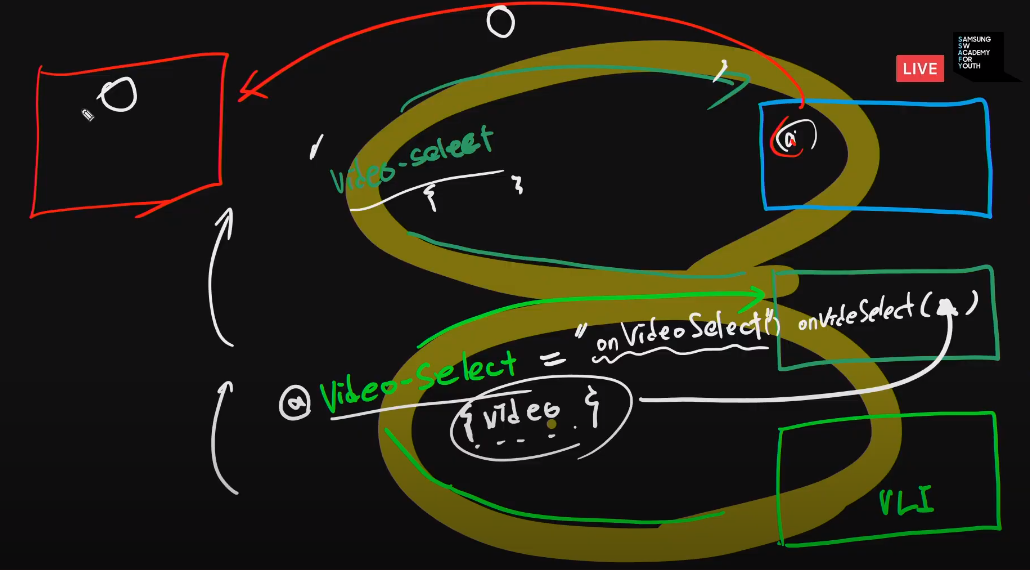 LIVE
SAMSUNG
SW
ACADEMY
FOR
YOUTH
a
Video-select
{ }
@ Video-Select = "onVideoSelect()"
onVideSelect( )
{ video }
VLI